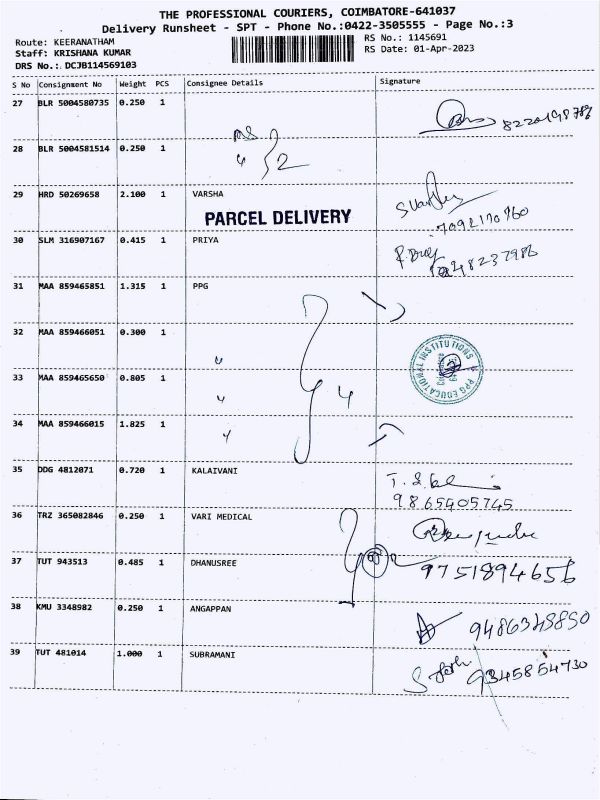 THE PROFESSIONAL COURIERS, COIMBATORE-641037
Delivery Runsheet - SPT - Phone No.:0422-3505555 - Page No.:3
Route: KEERANATHAM
Staff: KRISHANA KUMAR
DRS No.: DCJB114569103
RS No.: 1145691
RS Date: 01-Apr-2023
S No Consignment No Weight PCS Consignee Details Signature
27 BLR 5004580735 0.250 1
8220198786
28 BLR 5004581514 0.250 1
2
29 HRD 50269658 2.100 1 VARSHA
PARCEL DELIVERY
7092170760
30 SLM 316907167 0.415 1 PRIYA
31 MAA 859465851 1.315 1 PPG
32 MAA 859466051 0.300 1 "
33 MAA 859465650 0.805 1 "
4
PPG EDUCATIONAL INSTITUTIONS
34 MAA 859466015 1.825 1 "
35 DDG 4812071 0.720 1 KALAIVANI
9865405745
36 TRZ 365082846 0.250 1 VARI MEDICAL
37 TUT 943513 0.485 1 DHANUSREE
9751894656
38 KMU 3348982 0.250 1 ANGAPPAN
9486348850
39 TUT 481014 1.000 1 SUBRAMANI
9345854730